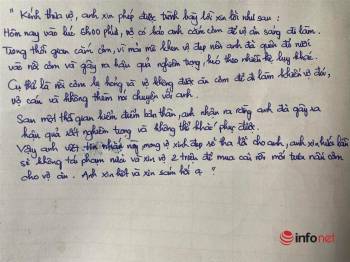 " Kính thưa vợ, anh xin phép được trình bày lời xin lỗi như sau :
Hôm nay vào lúc 6h00 phút, vợ có bảo anh cắm cơm để vợ ăn sáng đi làm.
Trong thời gian cắm cơm, vì mải mê khen vợ đẹp nên anh đã quên đổ nước
vào nồi cơm và gây ra hậu quả nghiêm trọng, kéo theo nhiều hệ lụy khác.
Cụ thể là nồi cơm bị hỏng và vợ không được ăn cơm để đi làm khiến vợ đói,
vợ cáu và không thèm nói chuyện với anh.
Sau một thời gian kiểm điểm bản thân, anh nhận ra rằng anh đã gây ra
hậu quả rất nghiêm trọng và không thể khắc phục được.
Vậy anh viết tin nhắn này mong vợ xinh đẹp sẽ tha lỗi cho anh, anh xin hứa lần sau
sẽ không tái phạm nữa và xin vợ 2 triệu để mua cái nồi mới tựa nấu cơm
cho vợ ăn. Anh xin hết và xin cảm ơn ạ. "
infonet